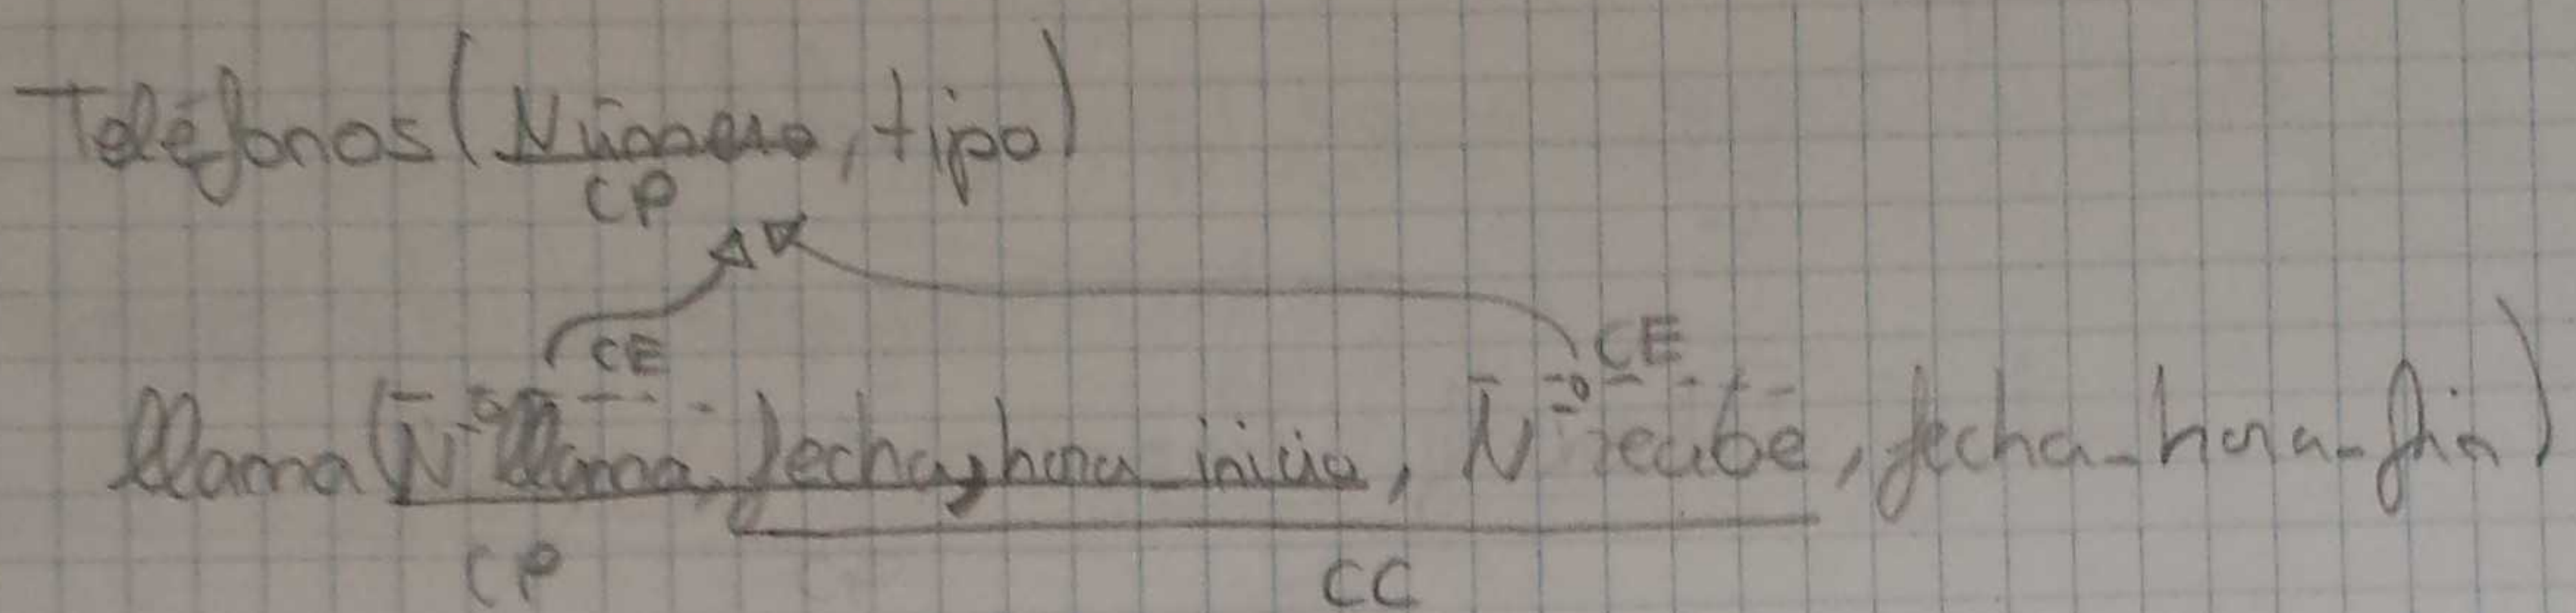 Teléfonos (Número, tipo)
CP
CE CE
llama (Nº llama, fecha_hora_inicio, Nº recibe, fecha_hora_fin)
CP CC